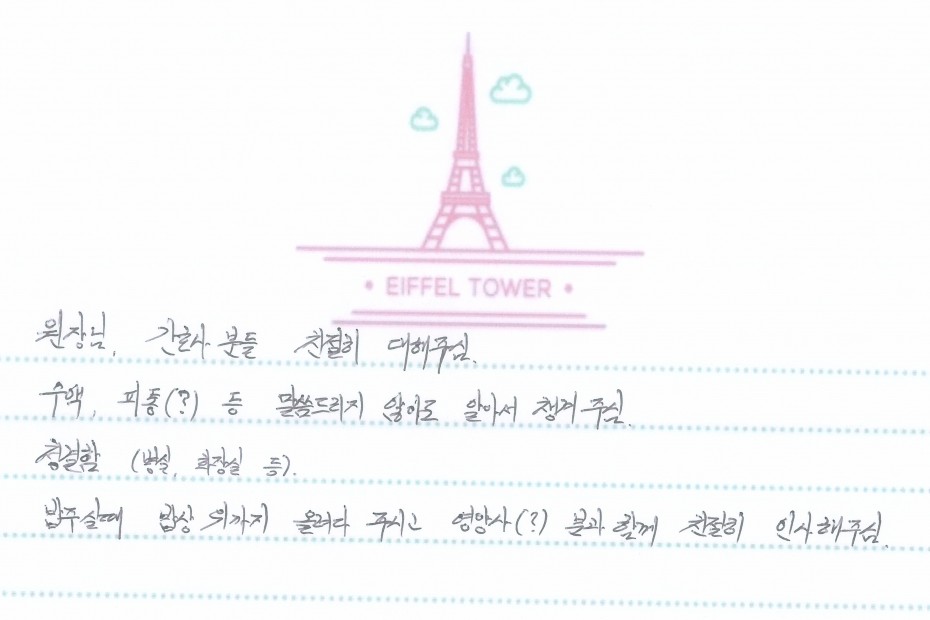 • EIFFEL TOWER •
원장님, 간호사 분들 친절히 대해주심.
수액, 피통(?) 등 말씀드리지 않아도 알아서 챙겨주심.
청결함 (병실, 화장실 등).
밥주실때 밥상 위까지 올려다 주시고 영양사(?) 분과 함께 친절히 인사해주심.